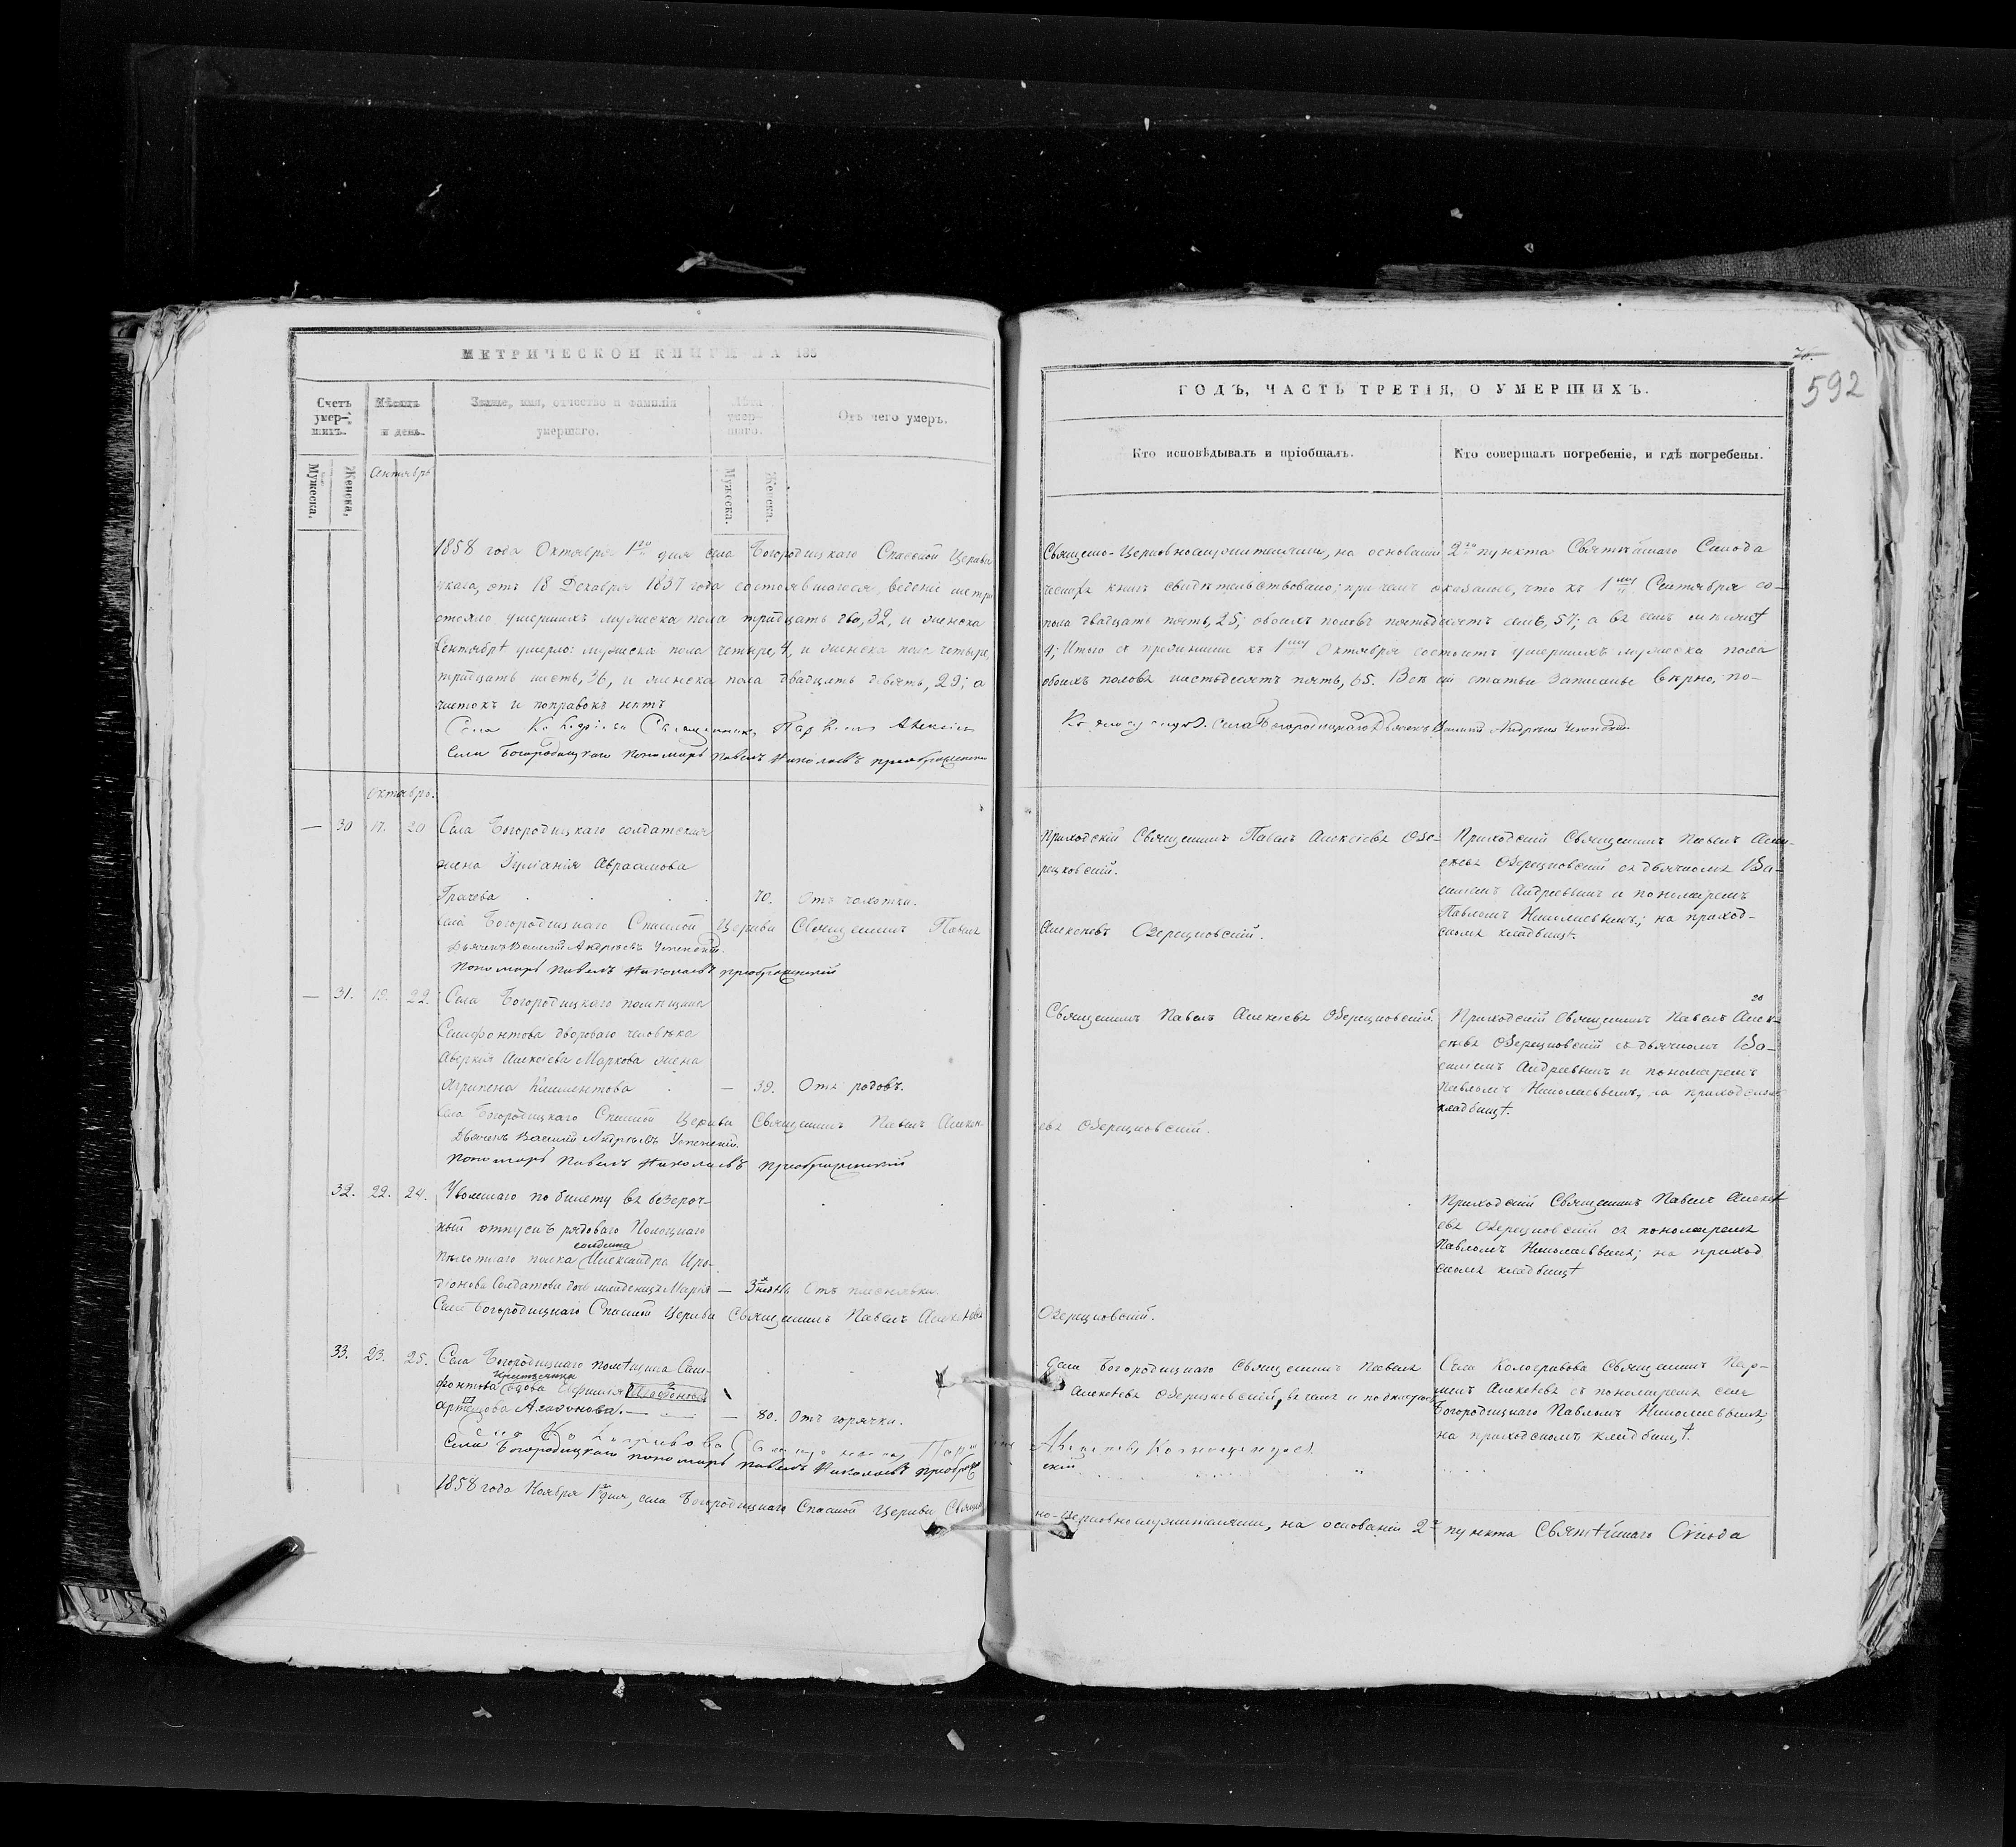 МЕТРИЧЕСКОЙ КНИГИ НА 185
Счетъ умер-шихъ.
Мѣсяцъ и день.
Званіе, имя, отчество и фамилія умершаго.
Лѣта умер-шаго.
Отъ чего умеръ.
Мужеска.
Женска.
Мужеска.
Женска.
Сентябрь
1858 года Октября 1го дня села Богородицкаго Спасской Церкви
указа, отъ 18 Декабря 1837 года состоявшагося, веденіе метри
стояло умершихъ мужеска пола тридцать два, 32, и женска
Сентябрѣ умерло: мужеска пола четыре, 4, и женска пола четыре,
тридцать шесть, 36, и женска пола двадцать девять, 29; а
чистокъ и поправокъ нѣтъ
Села Священникъ
Села Богородицкаго пономарь Павелъ Николаевъ Преображенскій
Октябрь.
— 30 17. 20 Села Богородицкаго солдатская
жена Іуліанія Авраамова
Грачева 70. Отъ чахотки.
Села Богородицкаго Спасской Церкви Священникъ Павелъ
Дьячекъ Василій Андреевъ Успенскій.
Пономарь Павелъ Николаевъ Преображенскій
— 31. 19. 22. Села Богородицкаго помѣщика
Селифонтова двороваго человѣка
Аверкія Алексіева Маркова жена
Агрипена Климентова — 39. Отъ родовъ.
Села Богородицкаго Спасской Церкви Священникъ Павелъ Алексѣ-
Дьячекъ Василій Андреевъ Успенскій.
Пономарь Павелъ Николаевъ Преображенскій
32. 22. 24. Уволеннаго по билету въ безсроч-
ный отпускъ рядоваго Полоцкаго
солдата
пѣхотнаго полка Александра Иро-
діонова Солдатова дочь младенецъ Марія — 3х недѣль Отъ
Села Богородицкаго Спасской Церкви Священникъ Павелъ Алексѣевъ
33. 23. 25. Села Богородицкаго помѣщика Сели-
крестьянка
фонтова вдова Евфимія
Агафонова. — 80. Отъ горячки.
Села
Села Богородицкаго пономарь Павелъ Николаевъ Преображен
1858 года Ноября 1го дня, села Богородицкаго Спасской Церкви Священ
592
ГОДЪ, ЧАСТЬ ТРЕТІЯ, О УМЕРШИХЪ.
Кто исповѣдывалъ и пріобщалъ.
Кто совершалъ погребеніе, и гдѣ погребены.
Священно-Церковнослужителями, на основаніи 2го пункта Святѣйшаго Синода
ческихъ книгъ свидѣтельствовано; при чемъ оказалось, что къ 1му Сентября со-
пола двадцать пять, 25; обоихъ половъ пятьдесятъ семь, 57; а въ семъ мѣсяцѣ
4; Итого съ прежними къ 1му Октября состоитъ умершихъ мужеска пола
обоихъ половъ шестьдесятъ пять, 65. Всѣ сіи статьи записаны вѣрно, по-
Села Богородицкаго Дьячекъ Василій Андреевъ Успенскій.
Приходскій Священникъ Павелъ Алексіевъ Озе-
рецковскій.
Приходскій Священникъ Павелъ Алек-
сѣевъ Озерецковскій съ дьячкомъ Ва-
силіемъ Андреевымъ и пономаремъ
Павломъ Николаевымъ; на приход-
скомъ кладбищѣ.
Алексѣевъ Озерецковскій.
Священникъ Павелъ Алексѣевъ Озерецковскій.
Приходскій Священникъ Павелъ Алек-
сѣевъ Озерецковскій съ дьячкомъ Ва-
силіемъ Андреевымъ и пономаремъ
Павломъ Николаевымъ, на приходскомъ
кладбищѣ.
евъ Озерецковскій.
Приходскій Священникъ Павелъ Алексѣ
евъ Озерецковскій съ пономаремъ
Павломъ Николаевымъ; на приход
скомъ кладбищѣ
Озерецковскій.
Села Богородицкаго Священникъ Павелъ
Алексѣевъ Озерецковскій,
Села Священникъ Пар-
Алексѣевъ съ пономаремъ села
Богородицкаго Павломъ Николаевымъ,
на приходскомъ кладбищѣ.
скій
но-Церковнослужителями, на основаніи 2го пункта Святѣйшаго Сѵнода